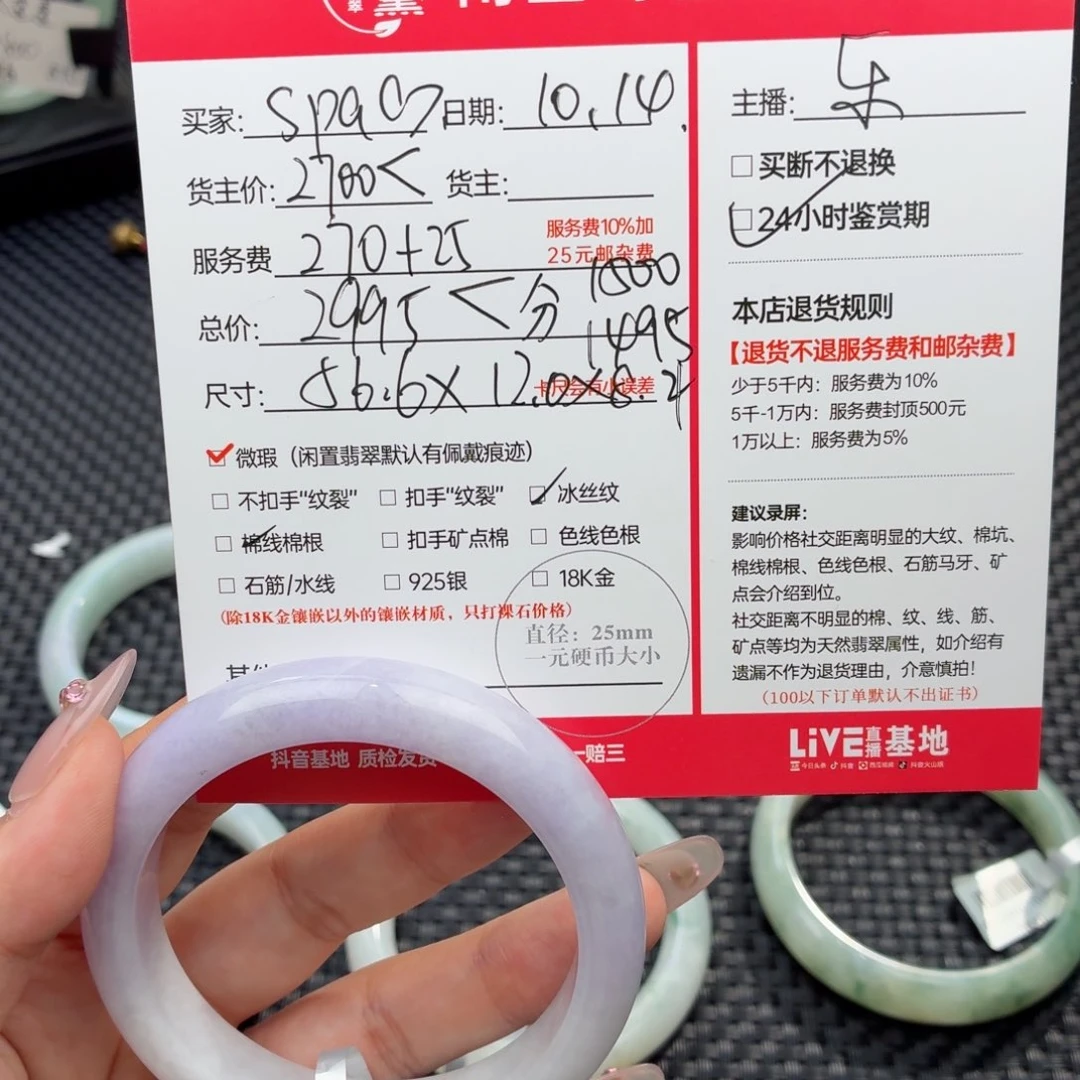 买家: spa 日期: 10.14.
货主价: 2700< 货主:
服务费 270+25 服务费10%加
25元邮杂费
总价: 2995 < 分 1500
1495
尺寸: 56.6×12.0×8.2 卡尺会有小误差
微瑕（闲置翡翠默认有佩戴痕迹）
不扣手“纹裂” 扣手“纹裂” 冰丝纹
棉线棉根 扣手矿点棉 色线色根
石筋/水线 925银 18K金
（除18K金镶嵌以外的镶嵌材质，只打裸石价格）
直径：25mm
一元硬币大小
抖音基地 质检发货
一赔三
主播: 乐
买断不退换
24小时鉴赏期
本店退货规则
【退货不退服务费和邮杂费】
少于5千内：服务费为10%
5千-1万内：服务费封顶500元
1万以上：服务费为5%
建议录屏：
影响价格社交距离明显的大纹、棉坑、
棉线棉根、色线色根、石筋马牙、矿
点会介绍到位。
社交距离不明显的棉、纹、线、筋、
矿点等均为天然翡翠属性，如介绍有
遗漏不作为退货理由，介意慎拍！
（100以下订单默认不出证书）
LiVE直播基地
今日头条 抖音 西瓜视频 抖音火山版